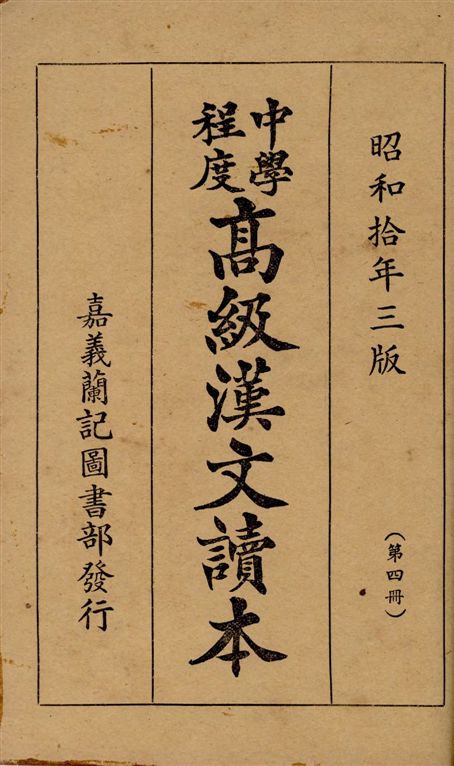 昭和拾年三版
（第四冊）
中學
程度
高級漢文讀本
嘉義蘭記圖書部發行